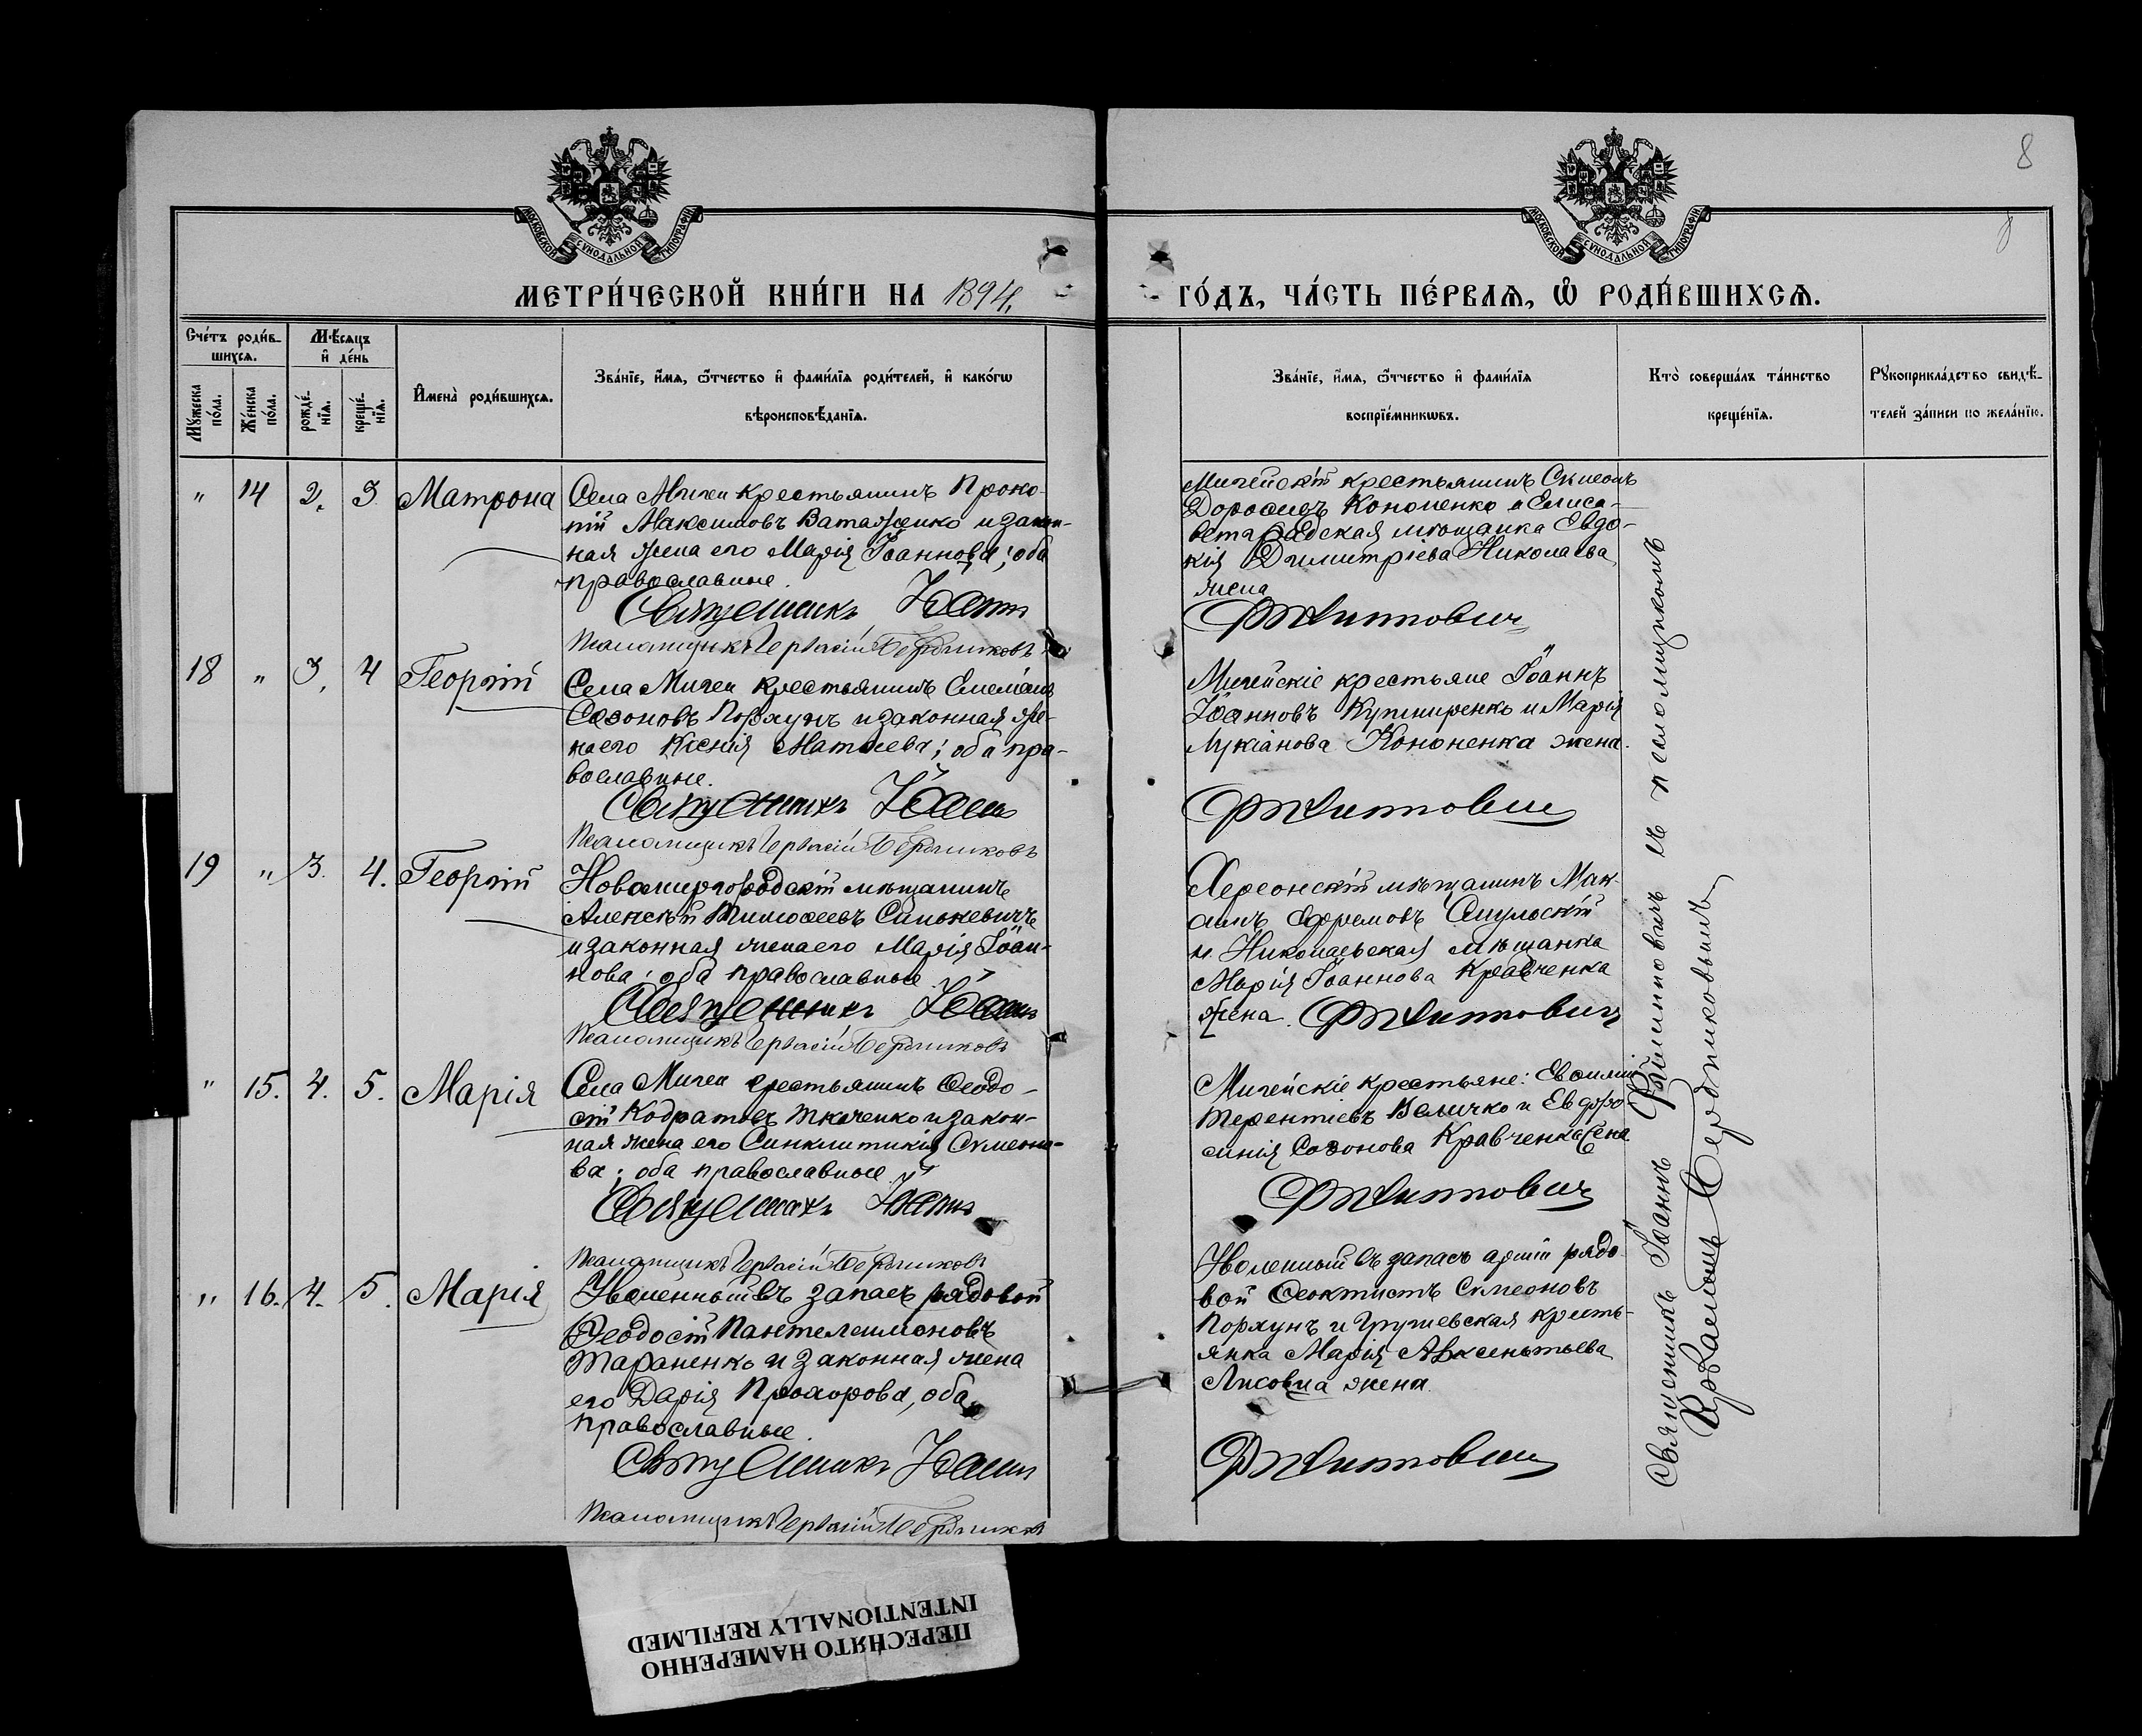 8
8
МОСКОВСКОЙ СѴНОДАЛЬНОЙ ТИПОГРАФІИ
МОСКОВСКОЙ СѴНОДАЛЬНОЙ ТИПОГРАФІИ
МЕТРИ́ЧЕСКОЙ КНИ́ГИ НА 1894
ГО́ДЪ, ЧА́СТЬ ПЕ́РВАѦ, Ѽ РОДИ́ВШИХСѦ.
Сче́тъ роди́в-
шихсѧ.
Мꙋжеска по́ла.
Же́нска по́ла.
Мѣ́сѧцъ
и҆ де́нь
рожде́-
нїѧ.
креще́-
нїѧ.
И҆мена̀ роди́вшихсѧ.
Зва́нїе, и҆́мѧ, ѻ҆́тчество и҆ фами́лїѧ роди́телей, и҆ како́гѡ
вѣроисповѣ́данїѧ.
Зва́нїе, и҆́мѧ, ѻ҆́тчество и҆ фами́лїѧ
воспрїе́мникѡвъ.
Кто̀ соверша́лъ та́инство
креще́нїѧ.
Рꙋкоприкла́дство свидѣ́-
телей за́писи по жела́нїю.
" 14 2. 3 Матрона
Села Мигеи крестьянинъ Проко-
пій Максимовъ Ватаженко и закон-
ная жена его Марія Іоаннова; оба
православные.
Священникъ Іоаннъ
Псаломщикъ Гервасій Бердниковъ
Мигейскій крестьянинъ Симеонъ
Дорофеевъ Кононенко и Елиса-
ветградская мещанка Евдо-
кія Димитріева Николаева
жена
Филипповичъ
18 " 3. 4 Георгій
Села Мигеи крестьянинъ Емеліанъ
Созоновъ Поряунъ и законная же-
на его Ксенія Матѳеева; оба пра-
вославные.
Священникъ Іоаннъ
Псаломщикъ Гервасій Бердниковъ
Мигейскіе крестьяне Іоаннъ
Іоанновъ Купширенко и Марія
Лукіанова Кононенка жена.
Филипповичъ
19 " 3. 4. Георгій
Новомиргородскій мѣщанинъ
Алексѣй Тимоѳеевъ Синькевичъ
и законная жена его Марія Іоан-
нова; оба православные.
Священникъ Іоаннъ
Псаломщикъ Гервасій Бердниковъ
Херсонскій мѣщанинъ Мак-
симъ Ефремовъ Смульскій
и Николаевская мѣщанка
Марія Іоаннова Кравченка
жена. Филипповичъ
" 15. 4. 5. Марія
Села Мигеи крестьянинъ Ѳеодо-
сій Кодратовъ Ткаченко и закон-
ная жена его Синклитикія Симеоно-
ва; оба православные.
Священникъ Іоаннъ
Псаломщикъ Гервасій Бердниковъ
Мигейскіе крестьяне: Евфимій
Терентіевъ Величко и Евфро
синія Созонова Кравченка жена
Филипповичъ
" 16. 4. 5. Марія
Уволенный въ запасъ рядовой
Ѳеодосій Пантелеимоновъ
Тараненко и законная жена
его Дарія Прохорова, оба
православные.
Священникъ Іоаннъ
Псаломщикъ Гервасій Бердниковъ
Уволенный въ запасъ арміи рядо
вой Ѳеоктистъ Симеоновъ
Поряунъ и Грушевская кресть-
янка Марія Авксентьева
Лисовца жена.
Филипповичъ
Священникъ Іоаннъ Филипповичъ съ псаломщикомъ
Гервасіемъ Бердниковымъ
ПЕРЕСНЯТО НАМЕРЕННО
INTENTIONALLY REFILMED